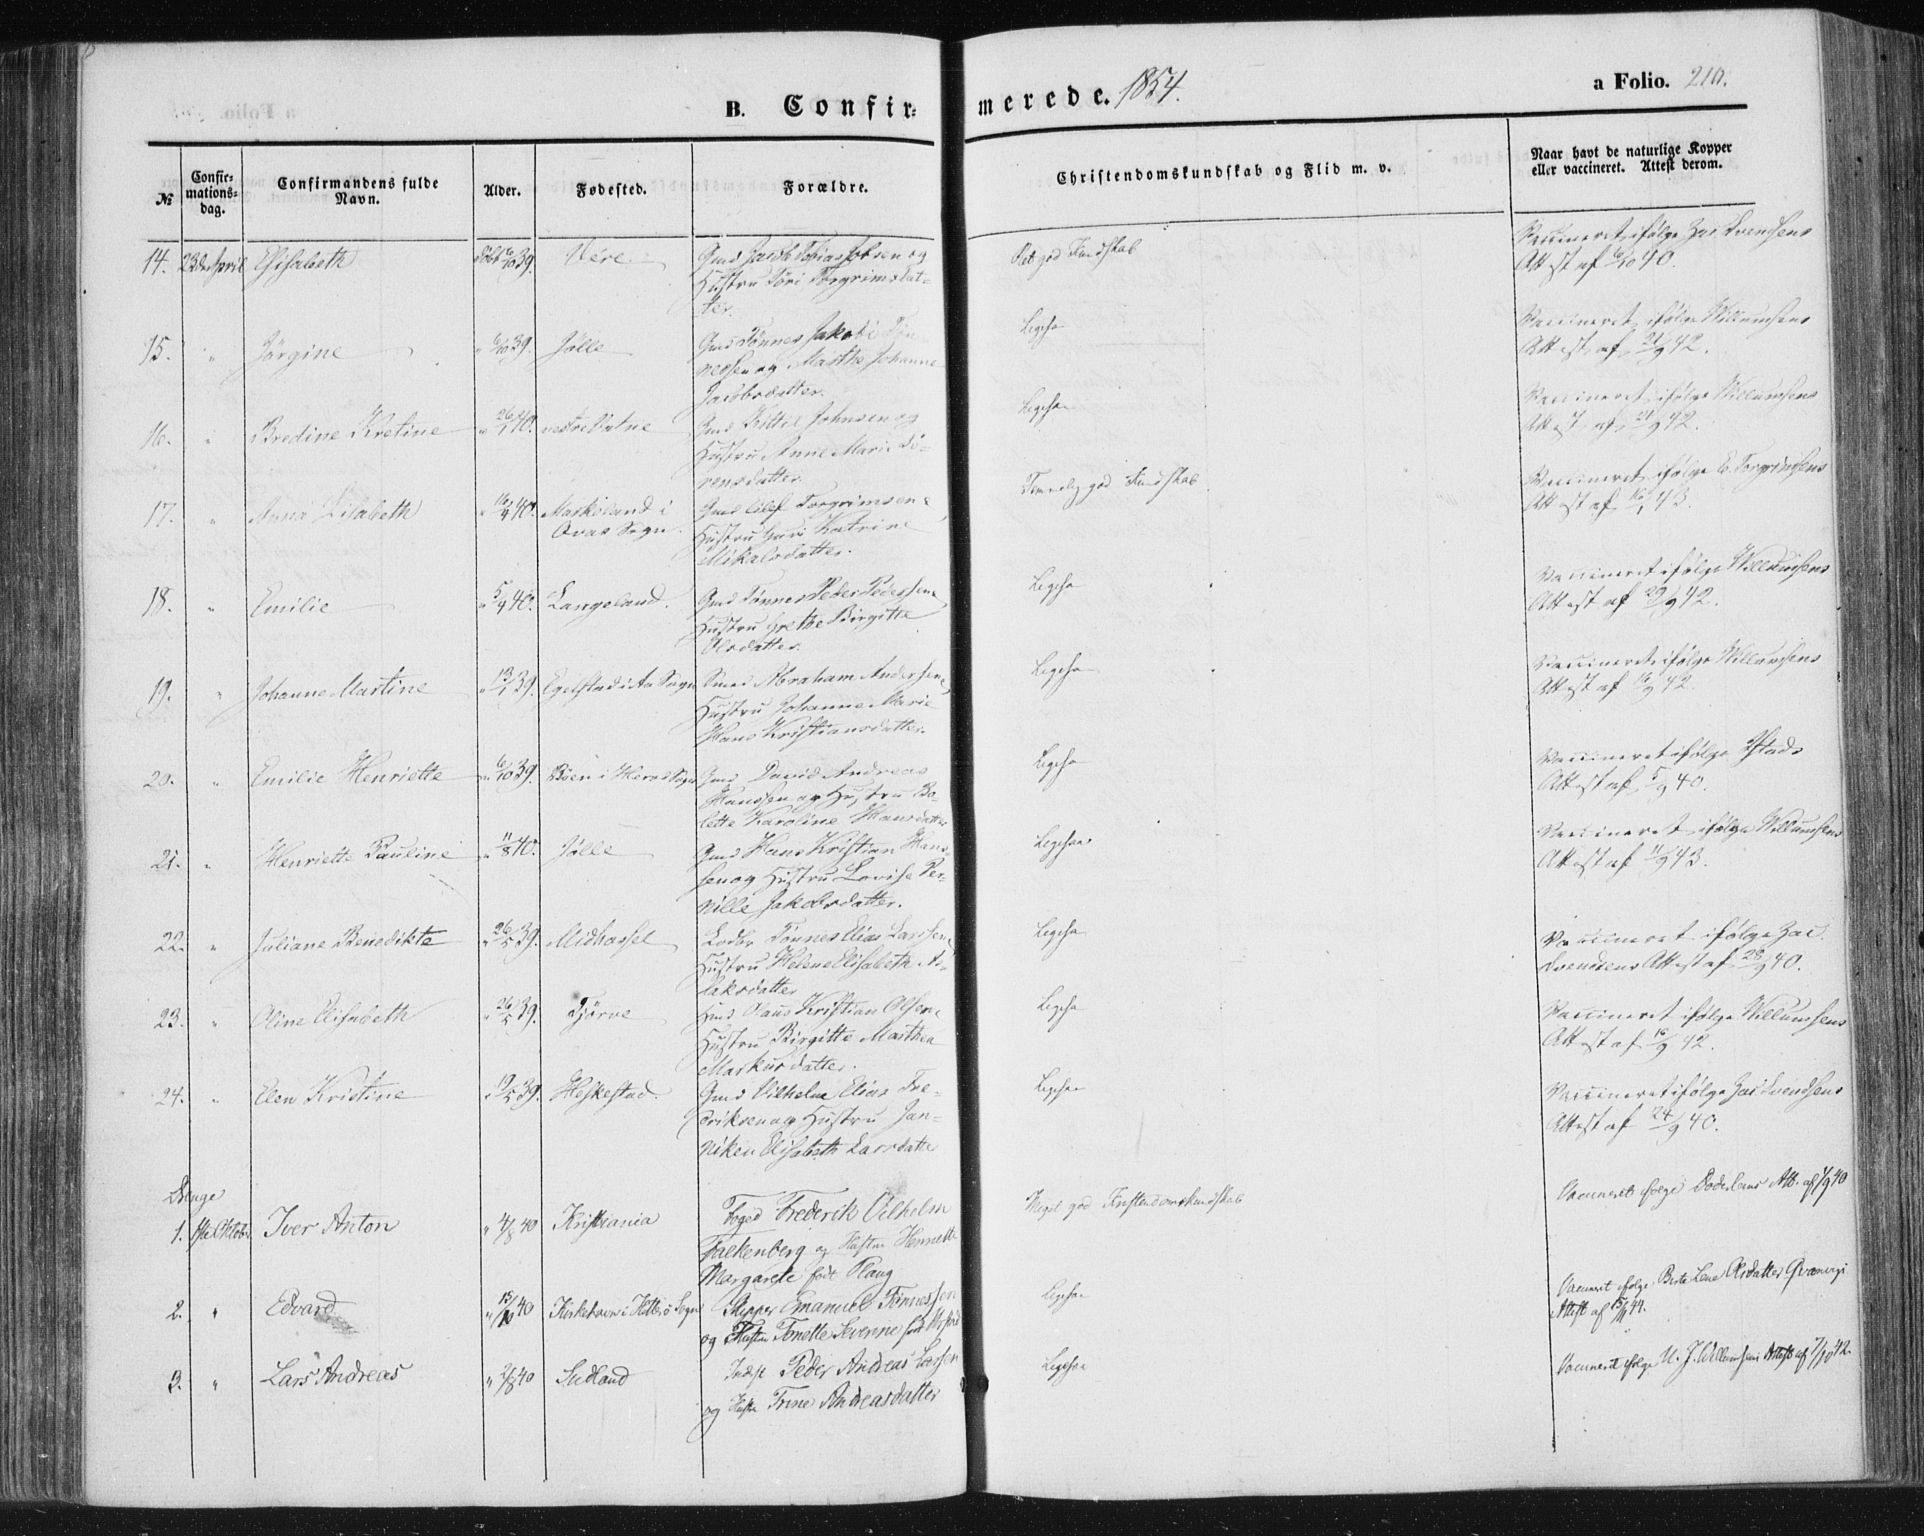 B. Confirmerede. 1854.
a Folio. 210.
№
Confirmationsdag.
Confirmandens fulde Navn.
Alder.
Fødested.
Forældre.
Christendomskundskab og Flid m. v.
Naar havt de naturlige Kopper eller vaccineret. Attest derom.
14. 23de April Elisabeth født 6/10 39. Vere Gmd Jacob Tobias Jobsen og Ret god Kundskab Vaccineret ifølge Zac. Svendsens
Hustru Tóri Torgrimsdat- Attest af 40.
ter.
15. " Jörgine " 6/10 39. Jølle Gmd Tønnes Jakob Tön- Ligesaa Vaccineret ifølge Willumsens
nessen og Marthe Johanne Attest af 21/9 42.
Jacobsdatter.
16. " Bredine Kretine " 26/1 40. vestre Vatne Gmd Kittil Johnsen og Ligesaa Vaccineret ifølge Willumsens
Hustru Anne Marie Sö- Attest af 21/9 42.
rensdatter
17. " Anna Lisabeth " 16/4 40. Markoland i Gmd Elef Torgrimsen Temmelig god Kundskab Vaccineret ifølge E. Torgrimsens
Sogn. Hustru Katrine Attest af 43.
Mikalsdatter.
18. " Emilie " 5/4 40. Langeland. Gmd Tönnes Peder Pedersen Ligesaa Vaccineret ifølge Willumsens
Hustru Grethe Birgitte Attest af 29/9 42.
Olsdatter.
19. " Johanne Martine " 13/1 39. Egelstad i Aa Sogn Smed Abraham Andersen Ligesaa Vaccineret ifølge Willumsens
Hustru Johanne Marie Attest af 16/9 42.
Hans Kristiansdatter.
20. " Emilie Henriette " 6/10 39. Böen i Heros Sogn Gmd David Andreas Ligesaa Vaccineret ifølge
Hanssen og Hustru Bo- Attest af 40.
lette Karoline Hansdatter
21. " Henriette Pauline " 11/8 40. Jölle Gmd Hans Kristian Hans- Ligesaa Vaccineret ifølge Willumsens
sen og Hustru Lovise Per- Attest af 11/9 43.
nille Jakobsdatter.
22. " Juliane Benedikte " 26/5 39. Midhassel Lods Tönnes Elias Larssen Ligesaa Vaccineret ifølge Zac.
Hustru Helene Elisabeth As- Svendsens Attest af 28/9 40.
laksdatter
23. " Oline Elisabeth " 26/5 39. Tjörve Hmd Olaus Kristian Olsen Ligesaa Vaccineret ifølge Willumsens
Hustru Birgitte Marthea Attest af 16/9 42.
Markusdatter.
24. " Elen Kristine " 19/5 39. Heskestad. Gmd Vilhelm Elias Fre- Ligesaa Vaccineret ifølge Zac Svendsens
driksen og Hustru Jan- Attest af 24/9 40.
niken Elisabeth Larsdatter
Drenge
1. 1ste Oktob. Iver Anton " 4/8 40 Kristiania Foged Frederik Vilhelm Meget god Kristendomskundskab Vaccineret ifølge Doderleins Att. af 1/9 40
Falkenberg og Hustru Henriette
Margarete født Ploug
2. " Edvard " 15/10 40 Kirkehavn i Hitterö Sogn Skipper Emanuel Tönnessen Ligesaa Vaccineret ifølge Berte Lene Olsdatter
og Hustru Tonette Severine født Attest af 44.
3. " Lars Andreas " 2/8 40 Sudland Peder Andreas Larsen Ligesaa Vaccineret ifølge U. J. Willumsens Attest af 7/10 42.
og Hustru Trine Andreasdatter